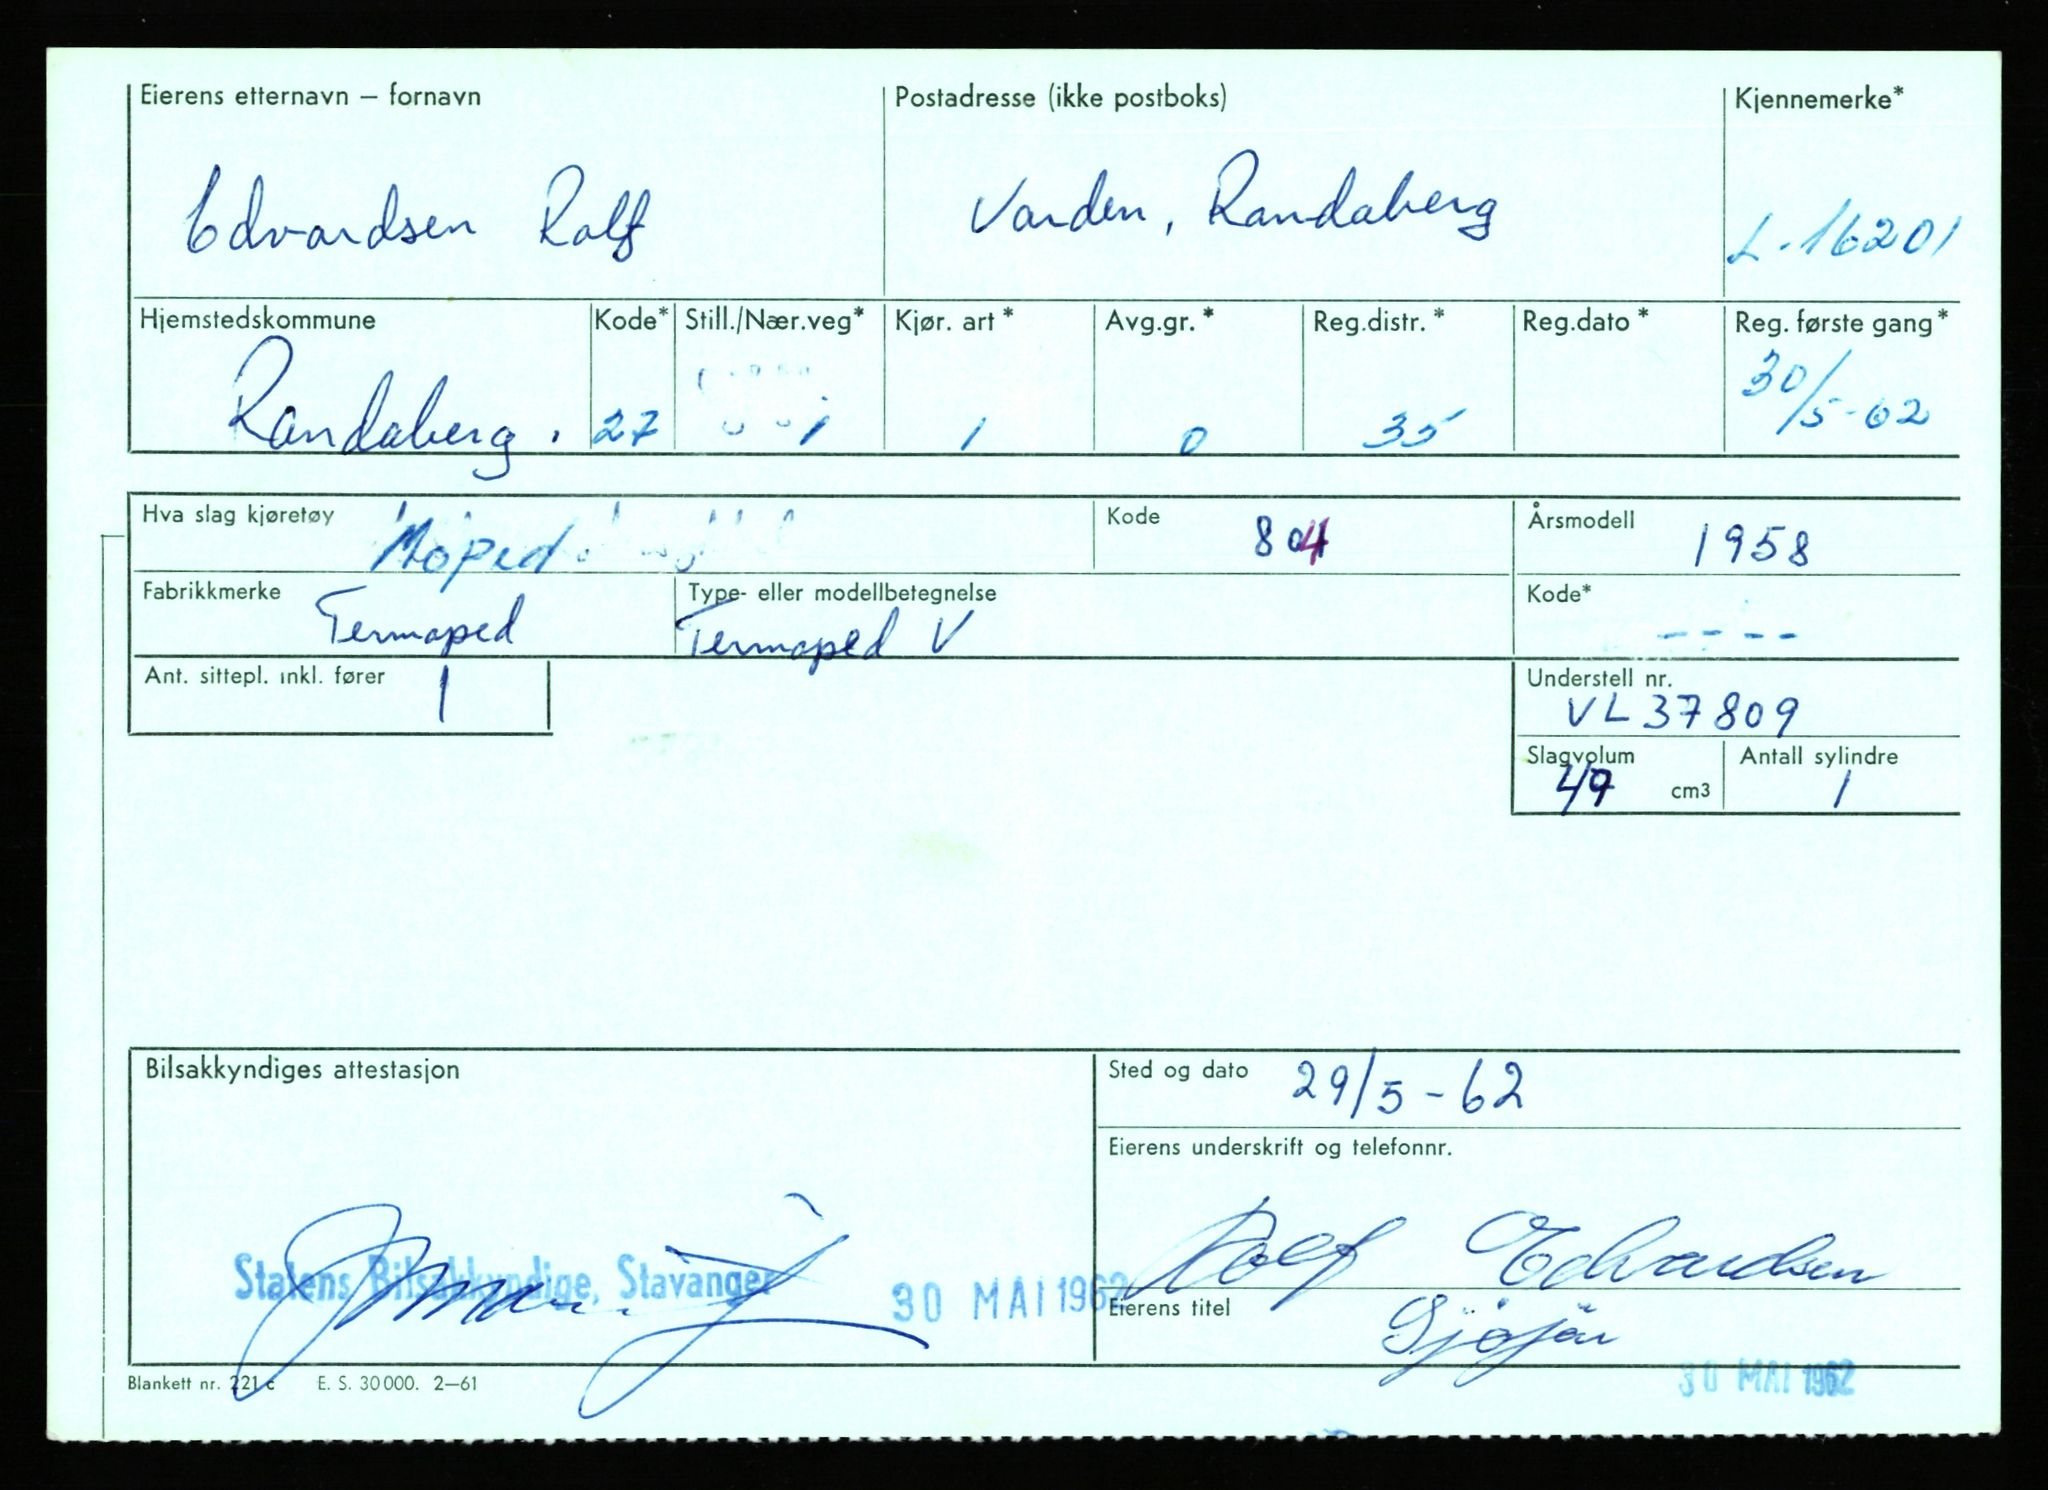 Eierens etternavn – fornavn Postadresse (ikke postboks) Kjennemerke*
Edvardsen Rolf Varden, Randaberg L-16201
Hjemstedskommune Kode* Still./Nær.veg* Kjør. art* Avg.gr.* Reg.distr.* Reg.dato* Reg. første gang*
Randaberg. 27 1 1 0 35 30/5-62
Hva slag kjøretøy Moped Kode 804 Årsmodell 1958
Fabrikkmerke Type- eller modellbetegnelse Kode*
Termoped Termoped V ----
Ant. sittepl. inkl. fører 1 Understell nr.
VL37809
Slagvolum Antall sylindre
49 cm3 1
Bilsakkyndiges attestasjon Sted og dato 29/5-62
Eierens underskrift og telefonnr.
Rolf Edvardsen
Statens Bilsakkyndige, Stavanger 30 MAI 1962
Eierens titel
30 MAI 1962
Blankett nr. 221 c E. S. 30 000. 2–61